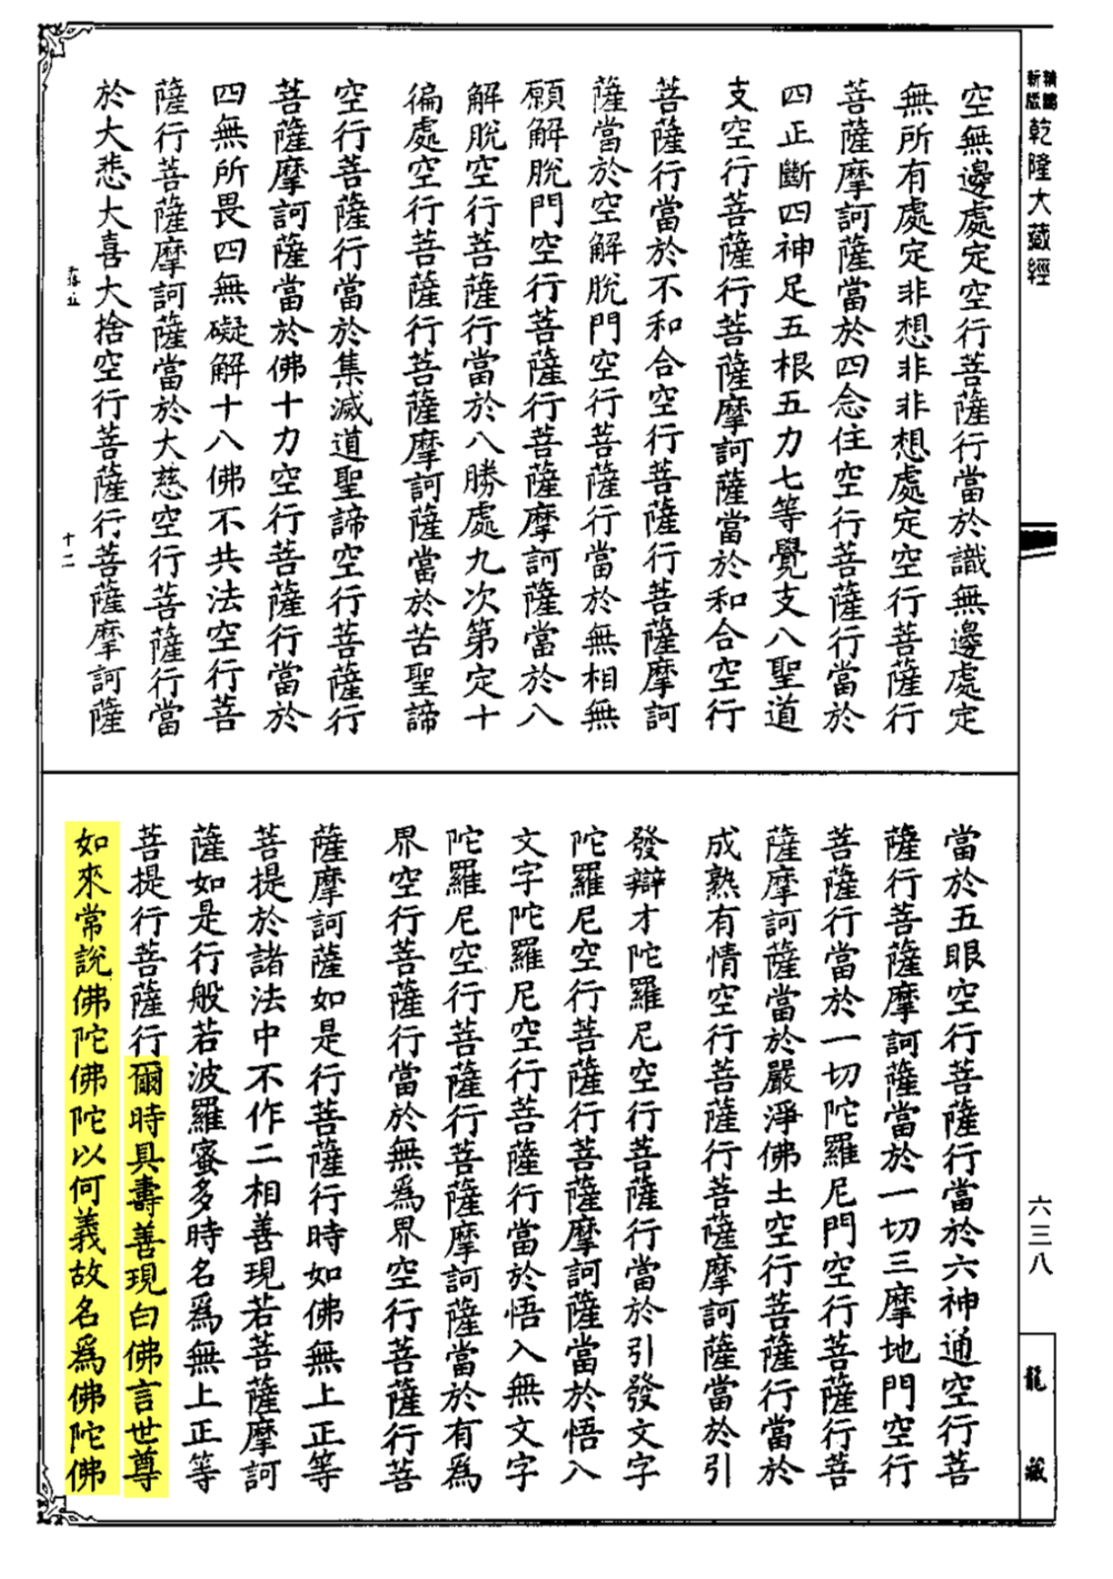 新版
乾隆大藏經
空無邊處定空行菩薩行當於識無邊處定
無所有處定非想非非想處定空行菩薩行
菩薩摩訶薩當於四念住空行菩薩行當於
四正斷四神足五根五力七等覺支八聖道
支空行菩薩行菩薩摩訶薩當於和合空行
菩薩行當於不和合空行菩薩行菩薩摩訶
薩當於空解脫門空行菩薩行當於無相無
願解脫門空行菩薩行菩薩摩訶薩當於八
解脫空行菩薩行當於八勝處九次第定十
徧處空行菩薩行菩薩摩訶薩當於苦聖諦
空行菩薩行當於集滅道聖諦空行菩薩行
菩薩摩訶薩當於佛十力空行菩薩行當於
四無所畏四無礙解十八佛不共法空行菩
薩行菩薩摩訶薩當於大慈空行菩薩行當
於大悲大喜大捨空行菩薩行菩薩摩訶薩
十二
六三八
龍藏
當於五眼空行菩薩行當於六神通空行菩
薩行菩薩摩訶薩當於一切三摩地門空行
菩薩行當於一切陀羅尼門空行菩薩行菩
薩摩訶薩當於嚴淨佛土空行菩薩行當於
成熟有情空行菩薩行菩薩摩訶薩當於引
發辯才陀羅尼空行菩薩行當於引發文字
陀羅尼空行菩薩行菩薩摩訶薩當於悟入
文字陀羅尼空行菩薩行當於悟入無文字
陀羅尼空行菩薩行菩薩摩訶薩當於有爲
界空行菩薩行當於無爲界空行菩薩行菩
薩摩訶薩如是行菩薩行時如佛無上正等
菩提於諸法中不作二相善現若菩薩摩訶
薩如是行般若波羅蜜多時名爲無上正等
菩提行菩薩行爾時具壽善現白佛言世尊
如來常說佛陀佛陀以何義故名爲佛陀佛